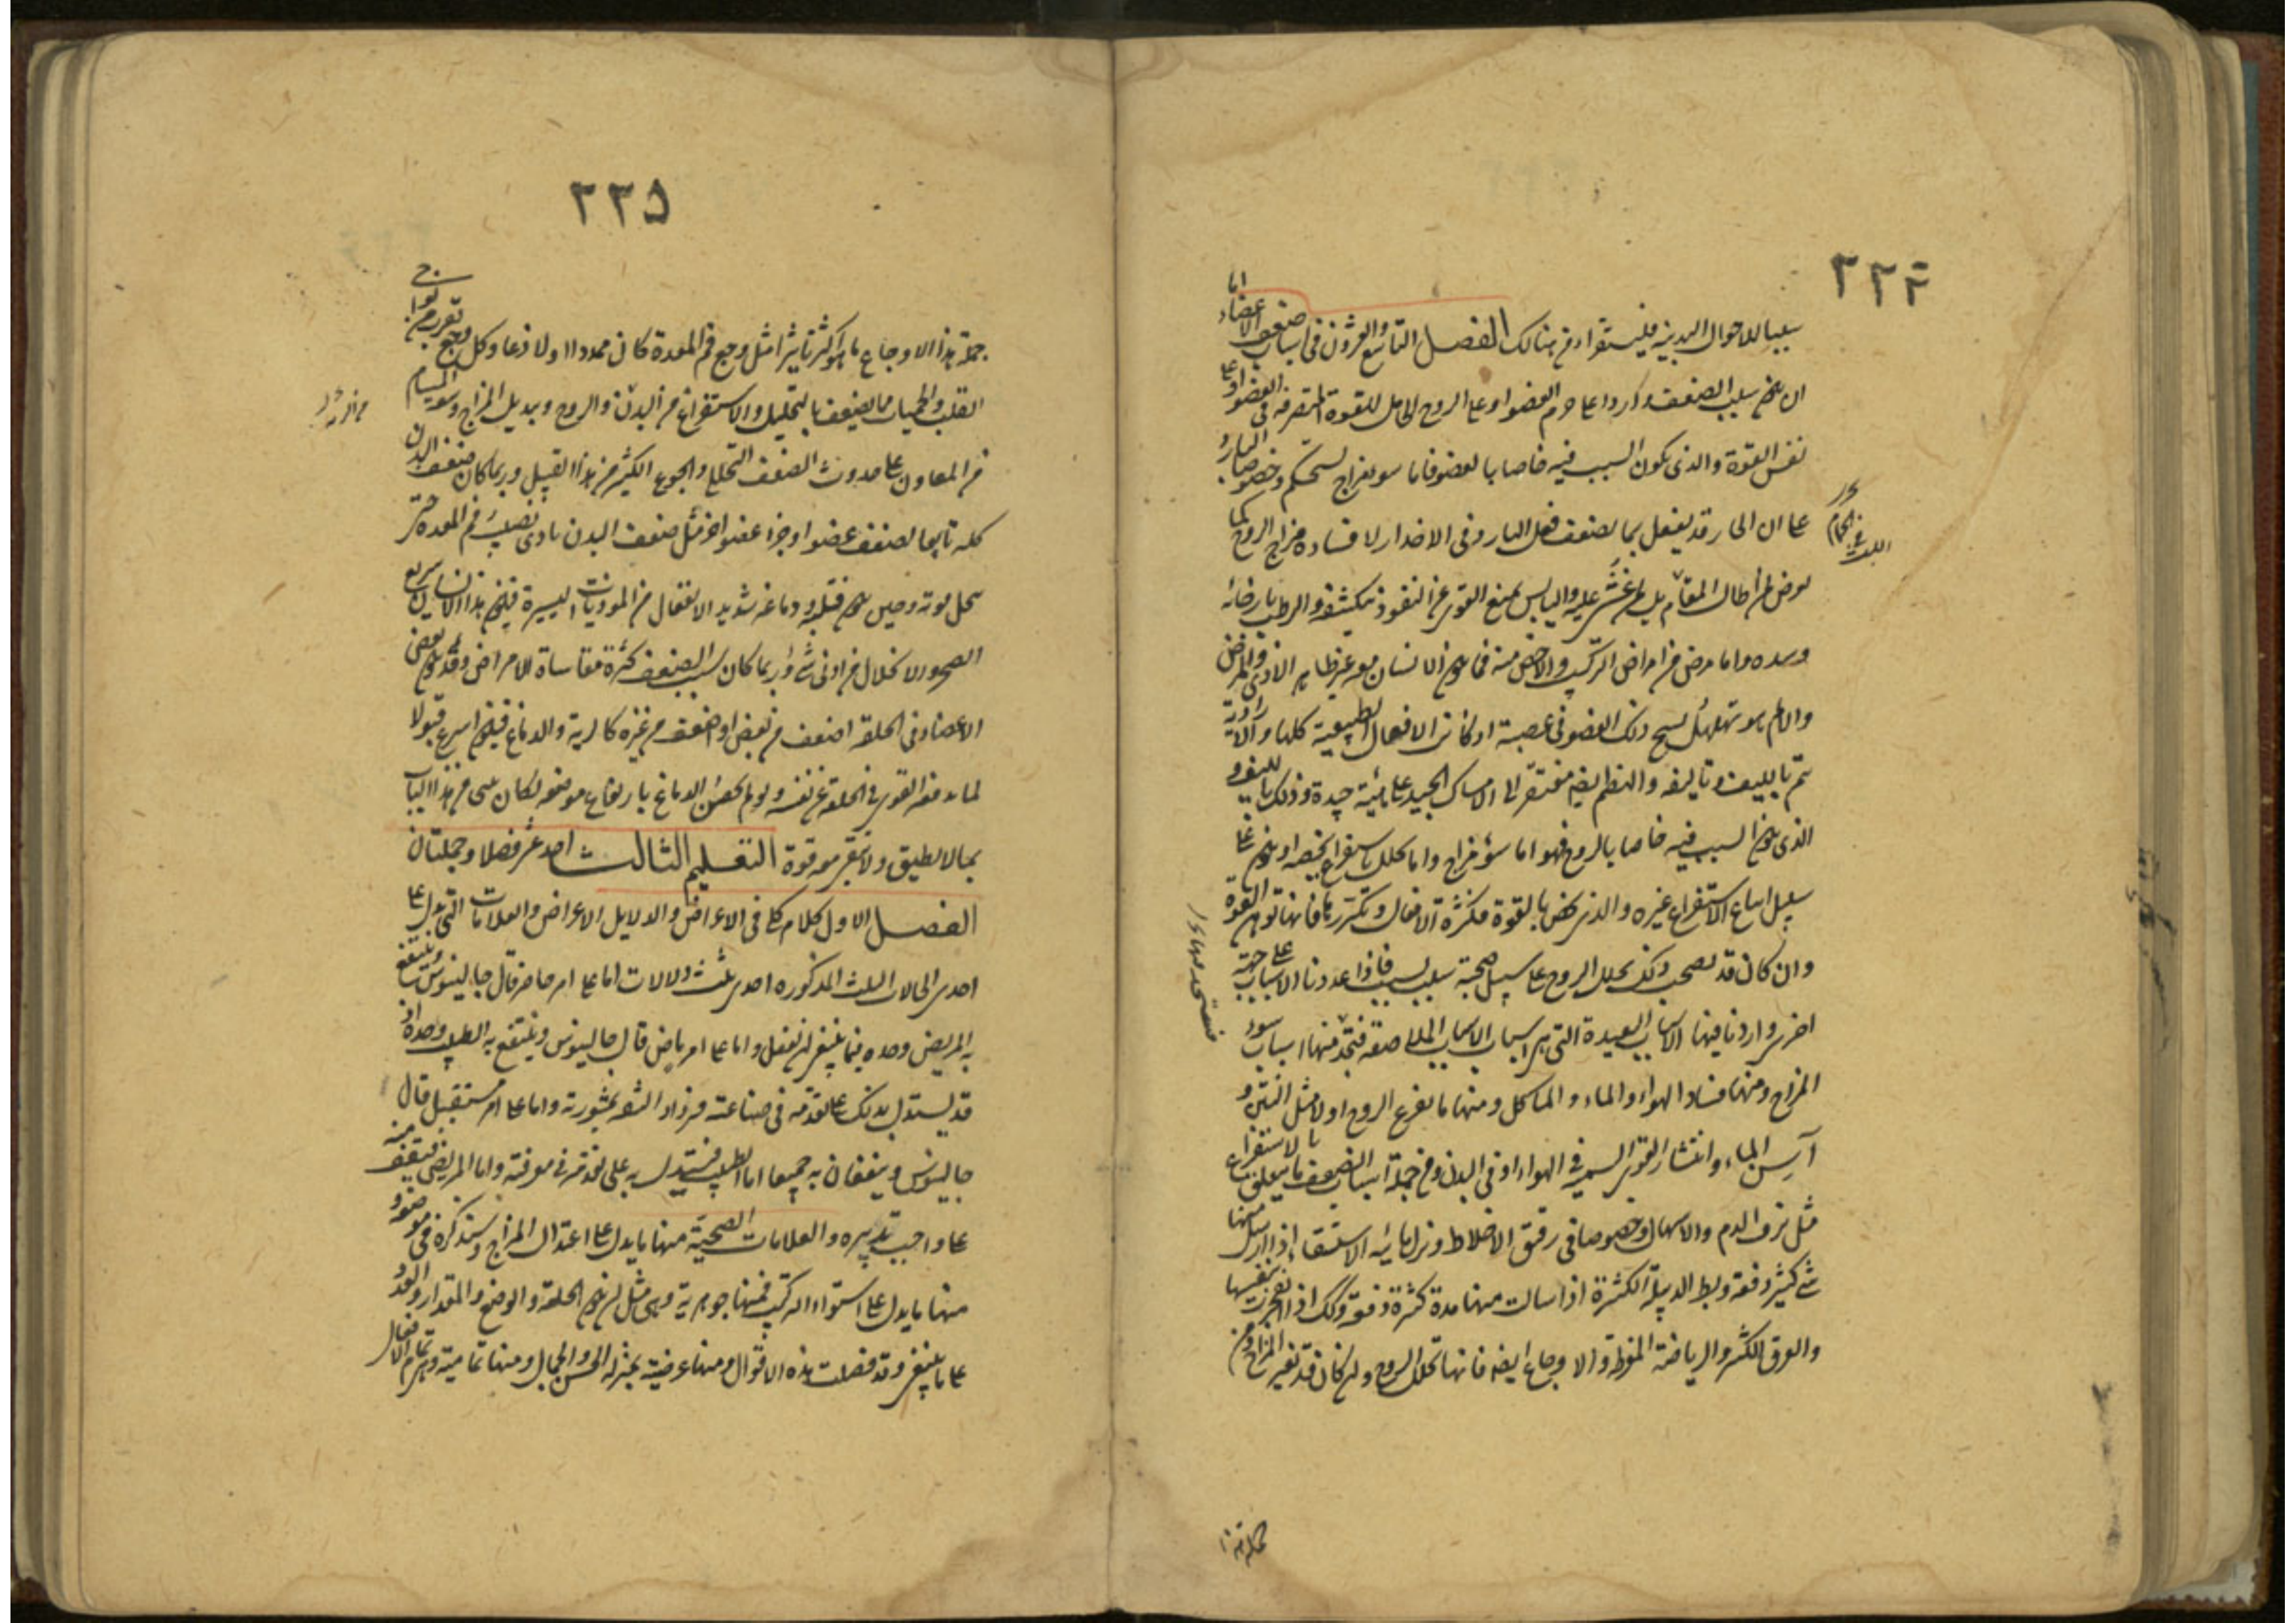 ٢٣٤
سببا للاحوال البدنية فليستقراء من هنالك الفصل التاسع والعشرون فى اسباب ضعف الاعضاء اما
ان يكون سبب الضعف واردا على جرم العضو او على الروح الحامل للقوة المتصرفة فى العضو او على
نفس القوة والذى يكون السبب فيه خاصا بالعضو فاما سوء مزاج مستحكم وخصوصا البارد
على ان الحار قد يفعل بما يضعف فعل البارد فى الاخدار لافساده مزاج الروح كما
يعرض لمن اطال المقام بل لمن غشى عليه واليابس يمنع القوى عن النفوذ بتكثيفه والرطب بارخائه
وسده واما مرض من امراض التركيب والاخص منه فما يكون الانسان معه غير ظاهر الاذى والمرض
والالم هو تهلهل نسج ذلك العضو فى عصبه اذ كانت الافعال الطبيعية كلها
تتم بالليف وتاليفه والهضم ايضا مفتقر الى الامساك الجيد على هيئة جيدة وذلك بالليف و
الذى يكون السبب فيه خاصا بالروح فهو اما سوء مزاج واما تحلل باستفراغ يخصه او يكون على
سبيل اتباع لاستفراغ غيره والذى يختص بالقوة فكثرة الافعال وتكررها فانها توهن القوة
وان كان قد يصحب ذلك تحلل الروح على سبيل صحبة سبب لسبب فاذا عددنا الاسباب على جهة
اخرى واردنا فيها الاسباب البعيدة التى هى اسباب الاسباب الملاصقة فتجد منها اسباب سوء
المزاج ومنها فساد الهواء والماء والماكل ومنها ما يفزع الروح اولا مثل النتن و
آسن الماء وانتشار القوى السمية فى الهواء او فى البدن ومن جملة اسباب الضعف ما يتعلق بالاستفراغ
مثل نزف الدم والاسهال وخصوصا فى رقيق الاخلاط وبزل مائية الاستسقاء اذا ارسل منها
شئ كثير دفعة وبط الدبيلة الكثيرة اذا سالت منها مدة كثيرة دفعة وكذلك اذا انفجرت بنفسها
والعرق الكثير والرياضة المفرطة والاوجاع ايضا فانها تحلل الروح وان كان قد تغير المزاج ومن
٢٣٥
جملة هذا الاوجاع ما هو اكثر تاثيرا مثل وجع فم المعدة كان ممددا او لاذعا وكل وجع تقرب من نواحى
القلب والحميات مما يضعف بالتحليل والاستفراغ من البدن والروح وتبديل المزاج وسعة المسام
من المعاون على حدوث الضعف التحللى والجوع الكثير من هذا القبيل وربما كان ضعف البدن
كله تابعا لضعف عضو او جزء عضو اخر مثل ضعف البدن باذى يصيب فم المعدة حتى
تنحل قوته وحين يكون قلبه ودماغه شديد الانفعال من الموذيات اليسيرة فيكون هذا الانسان سريع
الضجر والانخلال من ادنى شئ وربما كان سبب الضعف كثرة مقاساة الامراض وقد يكون بعض
الاعضاء فى الخلقة اضعف من بعض او اضعف من غيره كالرية والدماغ فيكون اسرع قبولا
لما يدفعه القوى فى الخلقة عن نفسه ولو لم يخص الدماغ بارتفاع موضعه لكان يمنى من هذا الباب
بما لا يطيق ولا تبقى معه قوة التعليم الثالث احد عشر فصلا وجملتان
الفصل الاول كلام كلى فى الاعراض والدلايل الاعراض والعلامات التى تدل على
احدى الحالات الثلث المذكورة احدى ثلث دلالات اما على امر حاضر قال جالينوس وينتفع
به المريض وحده فيما ينبغى ان يفعل واما على امر ماض قال جالينوس وينتفع به الطبيب وحده اذ
قد يستدل بذلك على تقدمه فى صناعته فيزداد الثقة بمشورته واما على امر مستقبل قال
جالينوس وينتفعان به جميعا اما الطبيب فيستدل به على تقدمه فى معرفته واما المريض فيقف منه
على واجب تدبيره والعلامات الصحية منها ما يدل على اعتدال المزاج وسنذكره فى موضعه و
منها ما يدل على استواء التركيب فمنها جوهرية وهى مثل ان يكون الخلقة والوضع والمقدار والعدد
على ما ينبغى وقد فصلت هذه الاقوال ومنها عرضية بمنزلة الحسن والجمال ومنها تمامية وهى من تمام الافعال